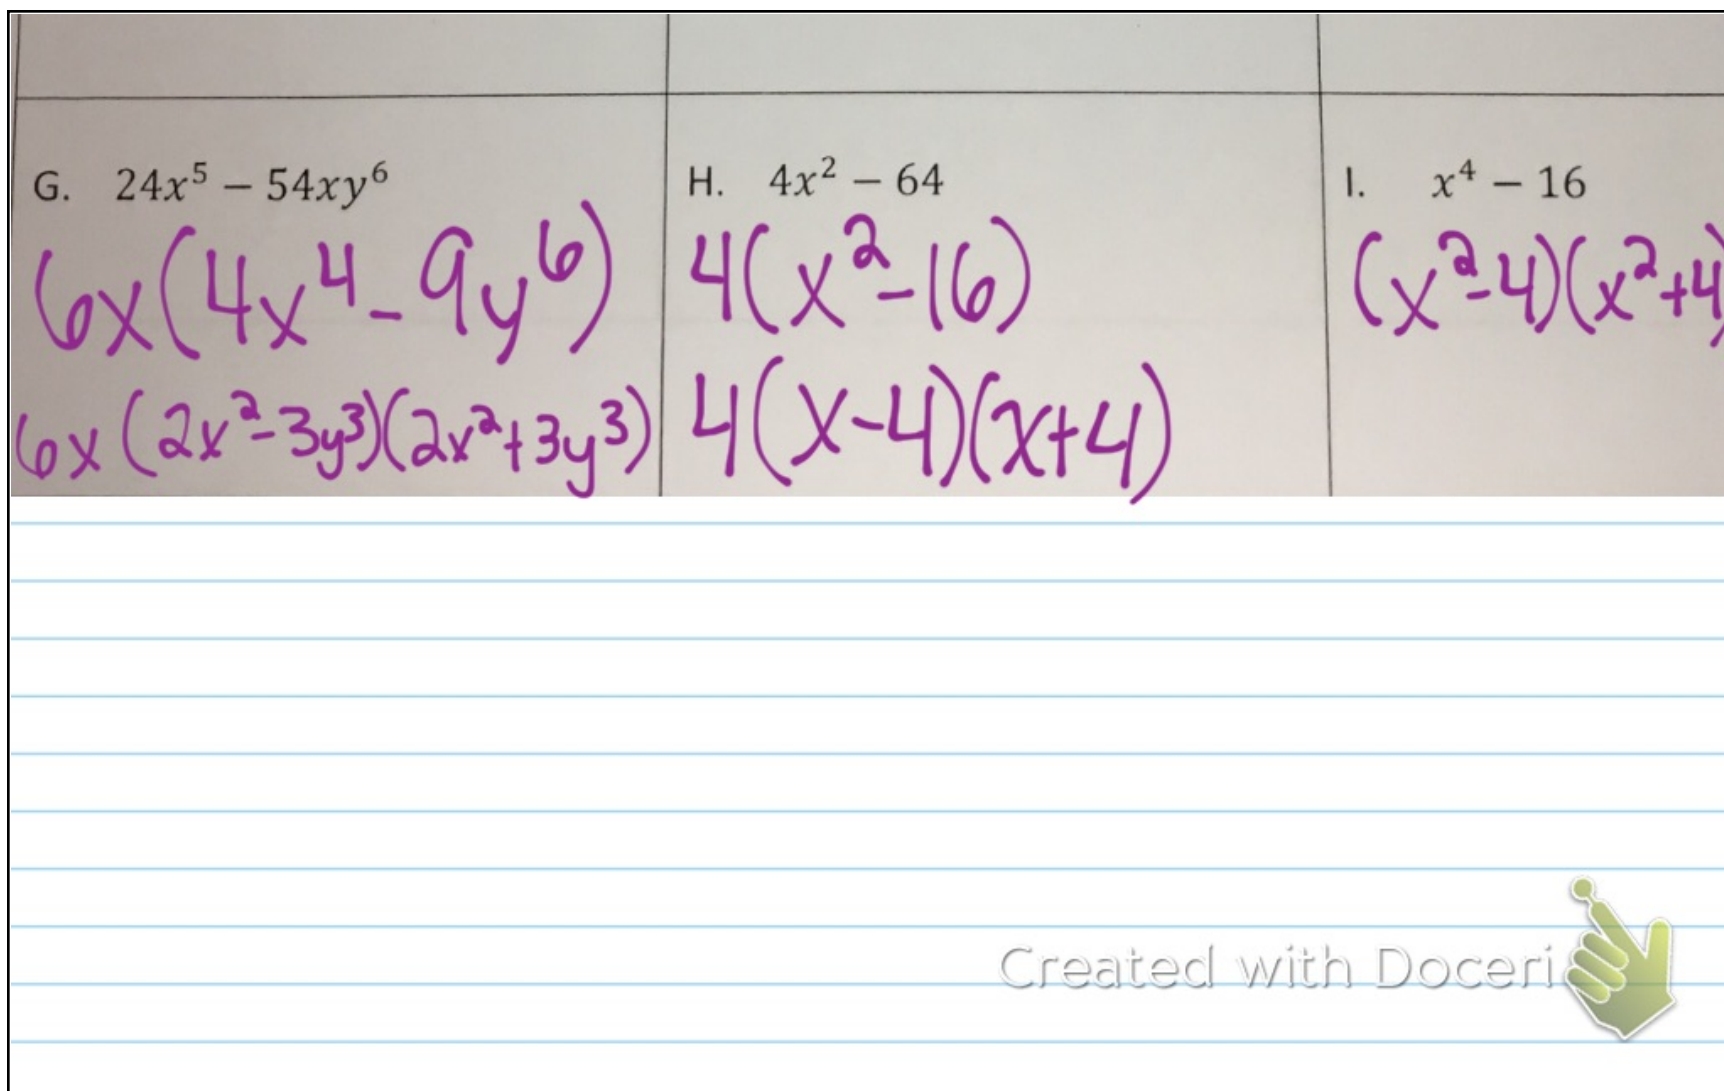 G. 24x⁵ − 54xy⁶
6x(4x⁴ - 9y⁶)
6x(2x²-3y³)(2x²+3y³)
H. 4x² − 64
4(x²-16)
4(x-4)(x+4)
I. x⁴ − 16
(x²-4)(x²+4)
Created with Doceri